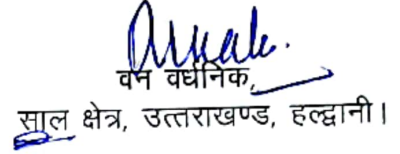 वन वर्धनिक,
साल क्षेत्र, उत्तराखण्ड, हल्द्वानी।